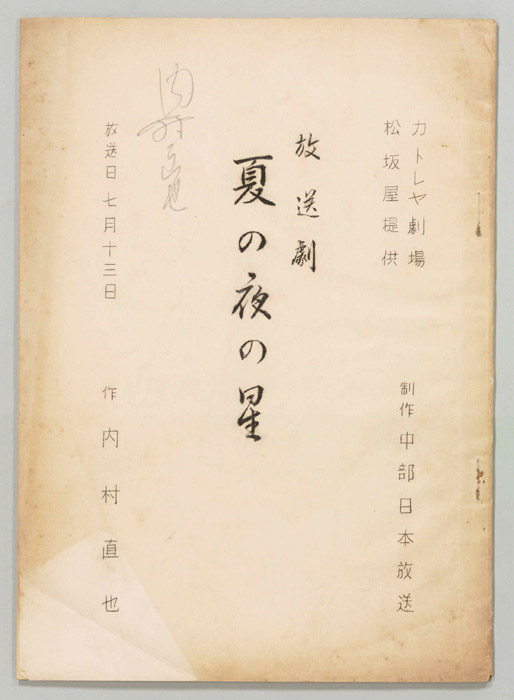 カトレヤ劇場
松坂屋提供
制作 中部日本放送
放送劇
夏の夜の星
内村直也
放送日 七月十三日
作 内村直也